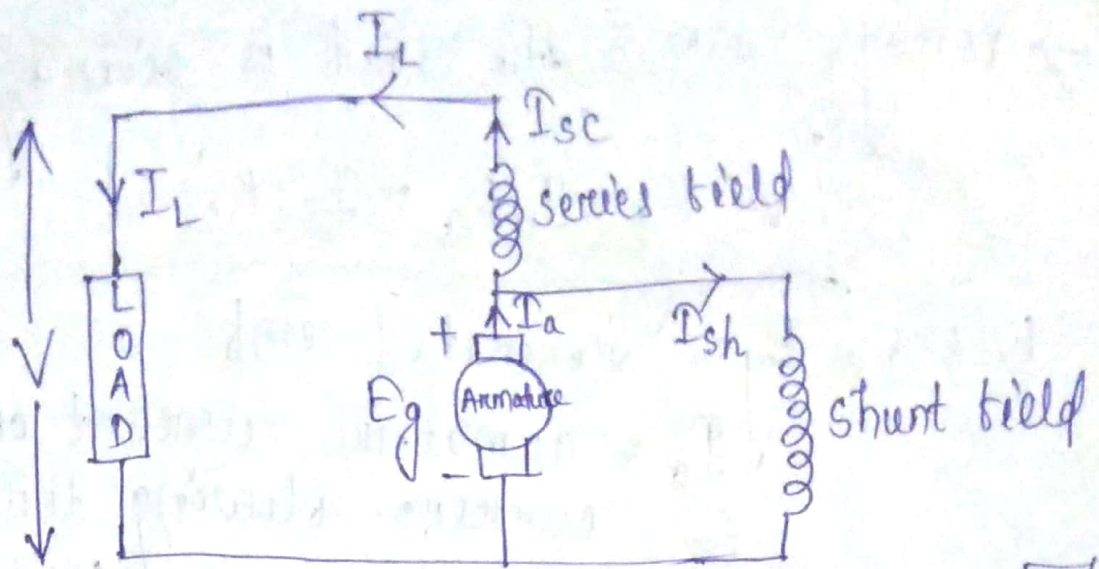 I_L
I_sc
I_L
series field
LOAD
V
+ I_a
I_sh
Eg
Armature
-
shunt field